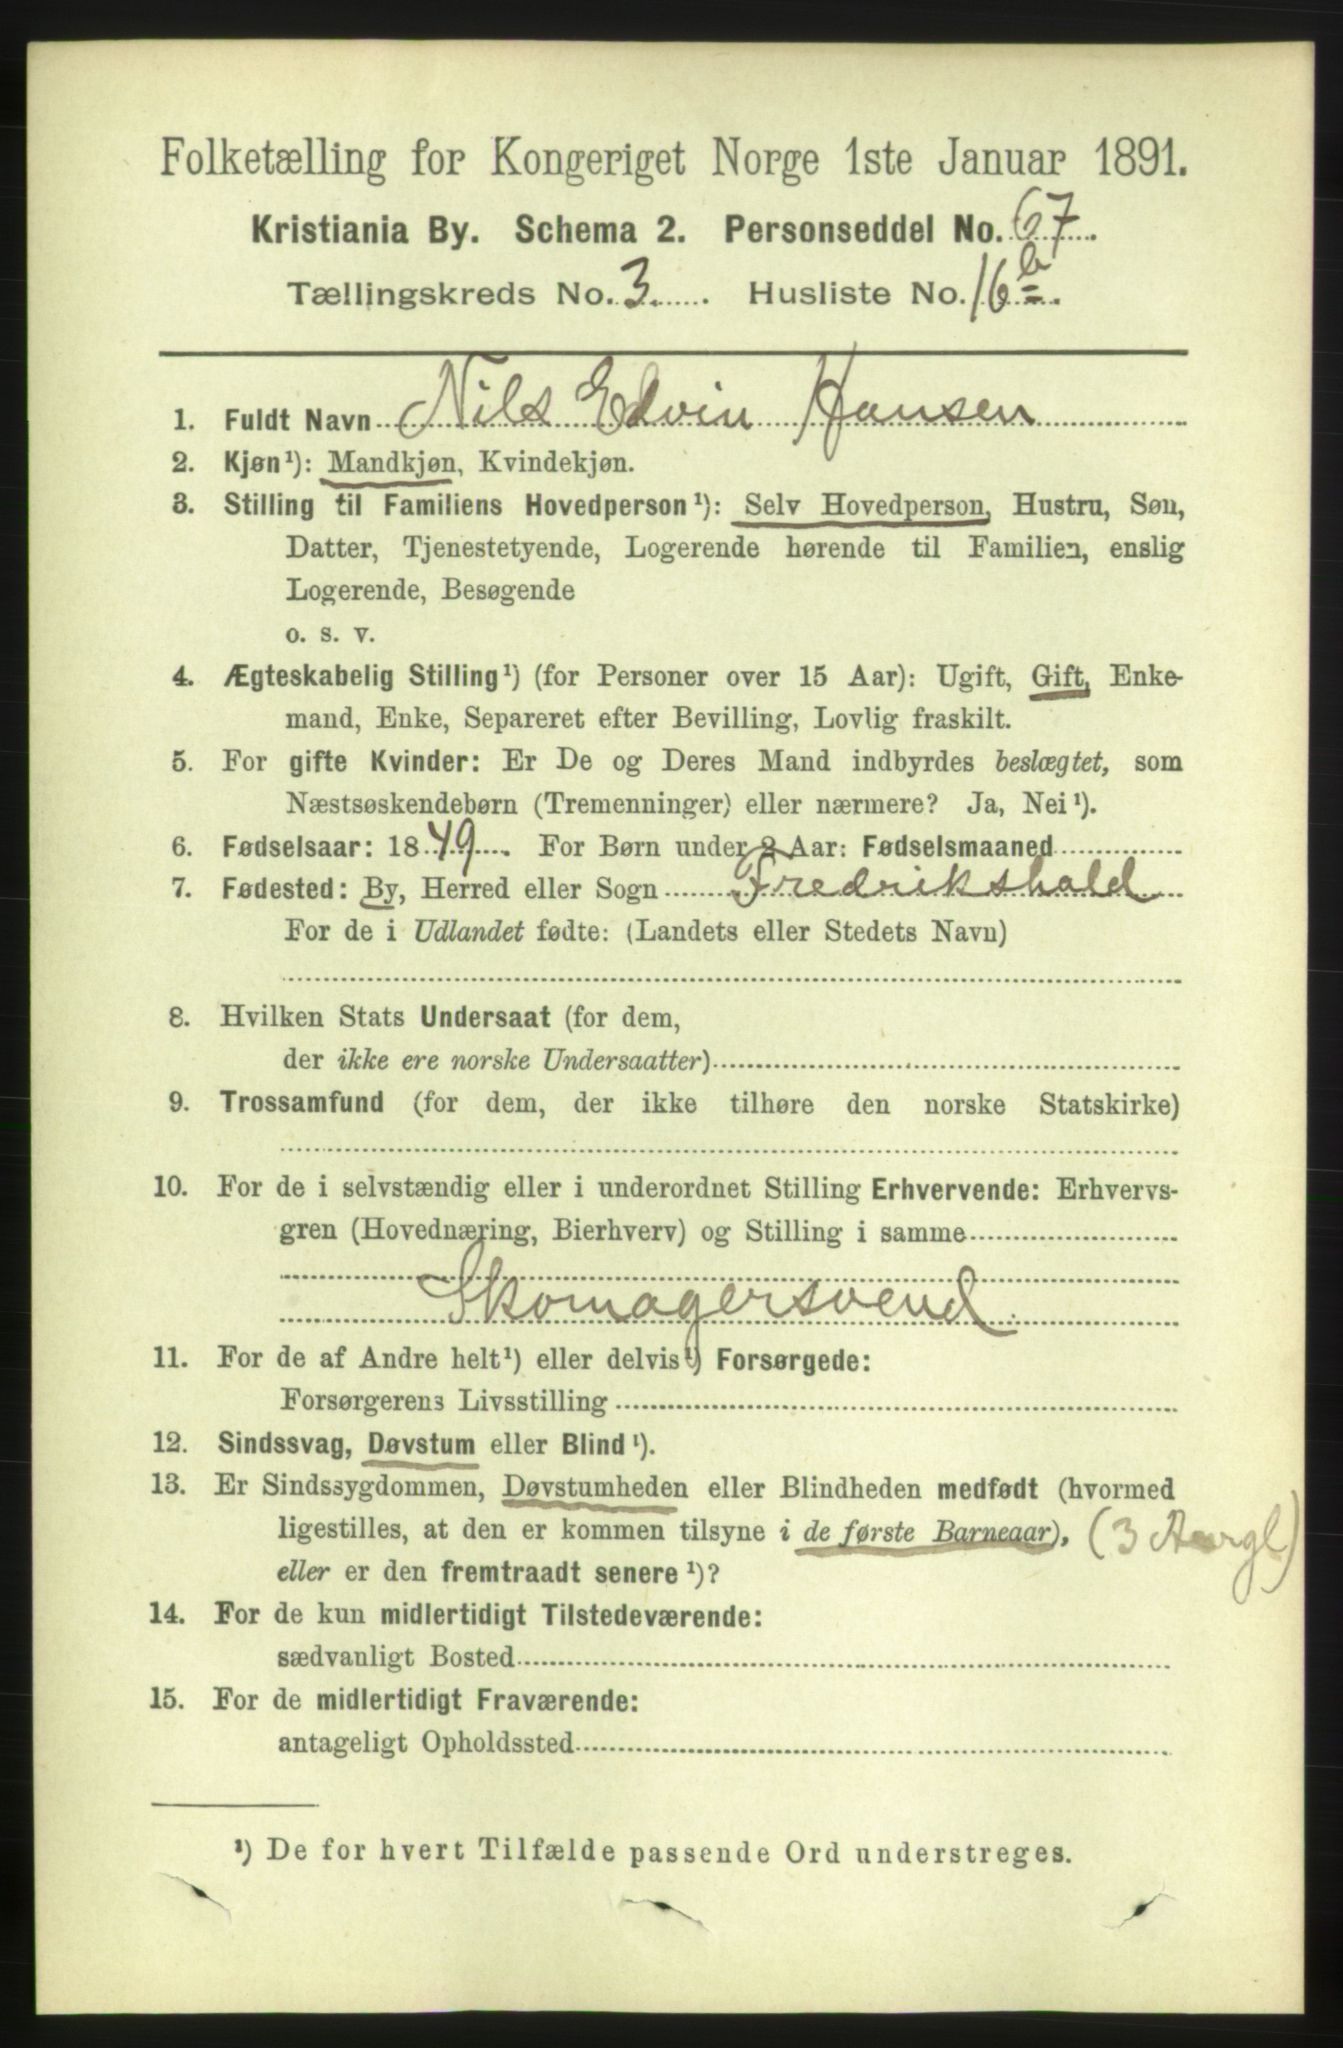 Folketælling for Kongeriget Norge 1ste Januar 1891.
Kristiania By. Schema 2. Personseddel No. 67
Tællingskreds No. 3. Husliste No. 16b
1. Fuldt Navn Nils Edvin Hansen
2. Kjøn¹): Mandkjøn, Kvindekjøn.
3. Stilling til Familiens Hovedperson¹): Selv Hovedperson, Hustru, Søn,
Datter, Tjenestetyende, Logerende hørende til Familien, enslig
Logerende, Besøgende
o. s. v.
4. Ægteskabelig Stilling¹) (for Personer over 15 Aar): Ugift, Gift, Enke-
mand, Enke, Separeret efter Bevilling, Lovlig fraskilt.
5. For gifte Kvinder: Er De og Deres Mand indbyrdes beslægtet, som
Næstsøskendebørn (Tremenninger) eller nærmere? Ja, Nei¹).
6. Fødselsaar: 1849. For Børn under 2 Aar: Fødselsmaaned
7. Fødested: By, Herred eller Sogn Fredrikshald
For de i Udlandet fødte: (Landets eller Stedets Navn)
8. Hvilken Stats Undersaat (for dem,
der ikke ere norske Undersaatter)
9. Trossamfund (for dem, der ikke tilhøre den norske Statskirke)
10. For de i selvstændig eller i underordnet Stilling Erhvervende: Erhvervs-
gren (Hovednæring, Bierhverv) og Stilling i samme
Skomagersvend.
11. For de af Andre helt¹) eller delvis¹) Forsørgede:
Forsørgerens Livsstilling
12. Sindssvag, Døvstum eller Blind¹).
13. Er Sindssygdommen, Døvstumheden eller Blindheden medfødt (hvormed
ligestilles, at den er kommen tilsyne i de første Barneaar), (3 Aargl)
eller er den fremtraadt senere¹)?
14. For de kun midlertidigt Tilstedeværende:
sædvanligt Bosted
15. For de midlertidigt Fraværende:
antageligt Opholdssted
¹) De for hvert Tilfælde passende Ord understreges.